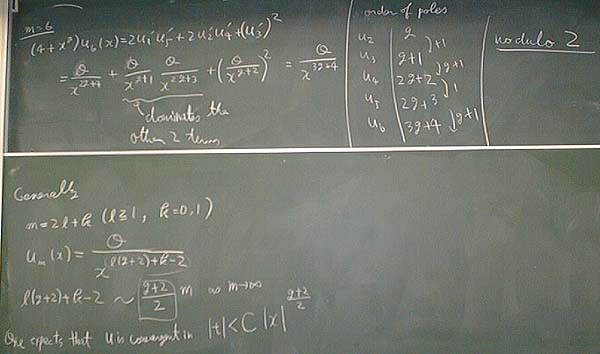 m=6
(4+x^g) u_6(x) = 2u_1' u_5' + 2u_2' u_4' + (u_3')^2
= O/x^{2g+4} + O/x^{g+1} O/x^{2g+3} + (O/x^{g+2})^2 = O/x^{3g+4}
dominates the
other 2 terms
order of poles
u_2 g
u_3 g+1 )+1
u_4 2g+2 )g+1
u_5 2g+3 )1
u_6 3g+4 )g+1
modulo 2
Generally
m=2l+k (l≧1, k=0,1)
u_m(x) = O/x^{l(g+2)+k-2}
l(g+2)+k-2 ~ (g+2)/2 m as m→∞
One expects that u is convergent in |t|<C|x|^{(g+2)/2}